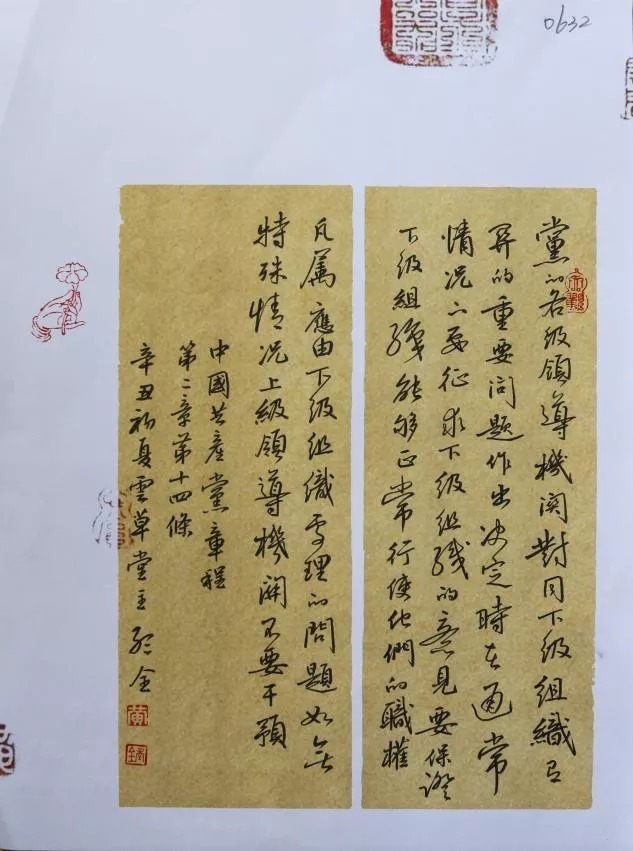 0632
黨的各級領導機関對同下級組織有
関的重要问题作出决定時在通常
情况下要征求下級組織的意見要保證
下級組織能够正常行使他們的職權
凡属應由下級组織處理的問題如無
特殊情况上級領導機関不要干預
中國共產黨章程
第二章第十四條
辛丑初夏雲草堂主
黄